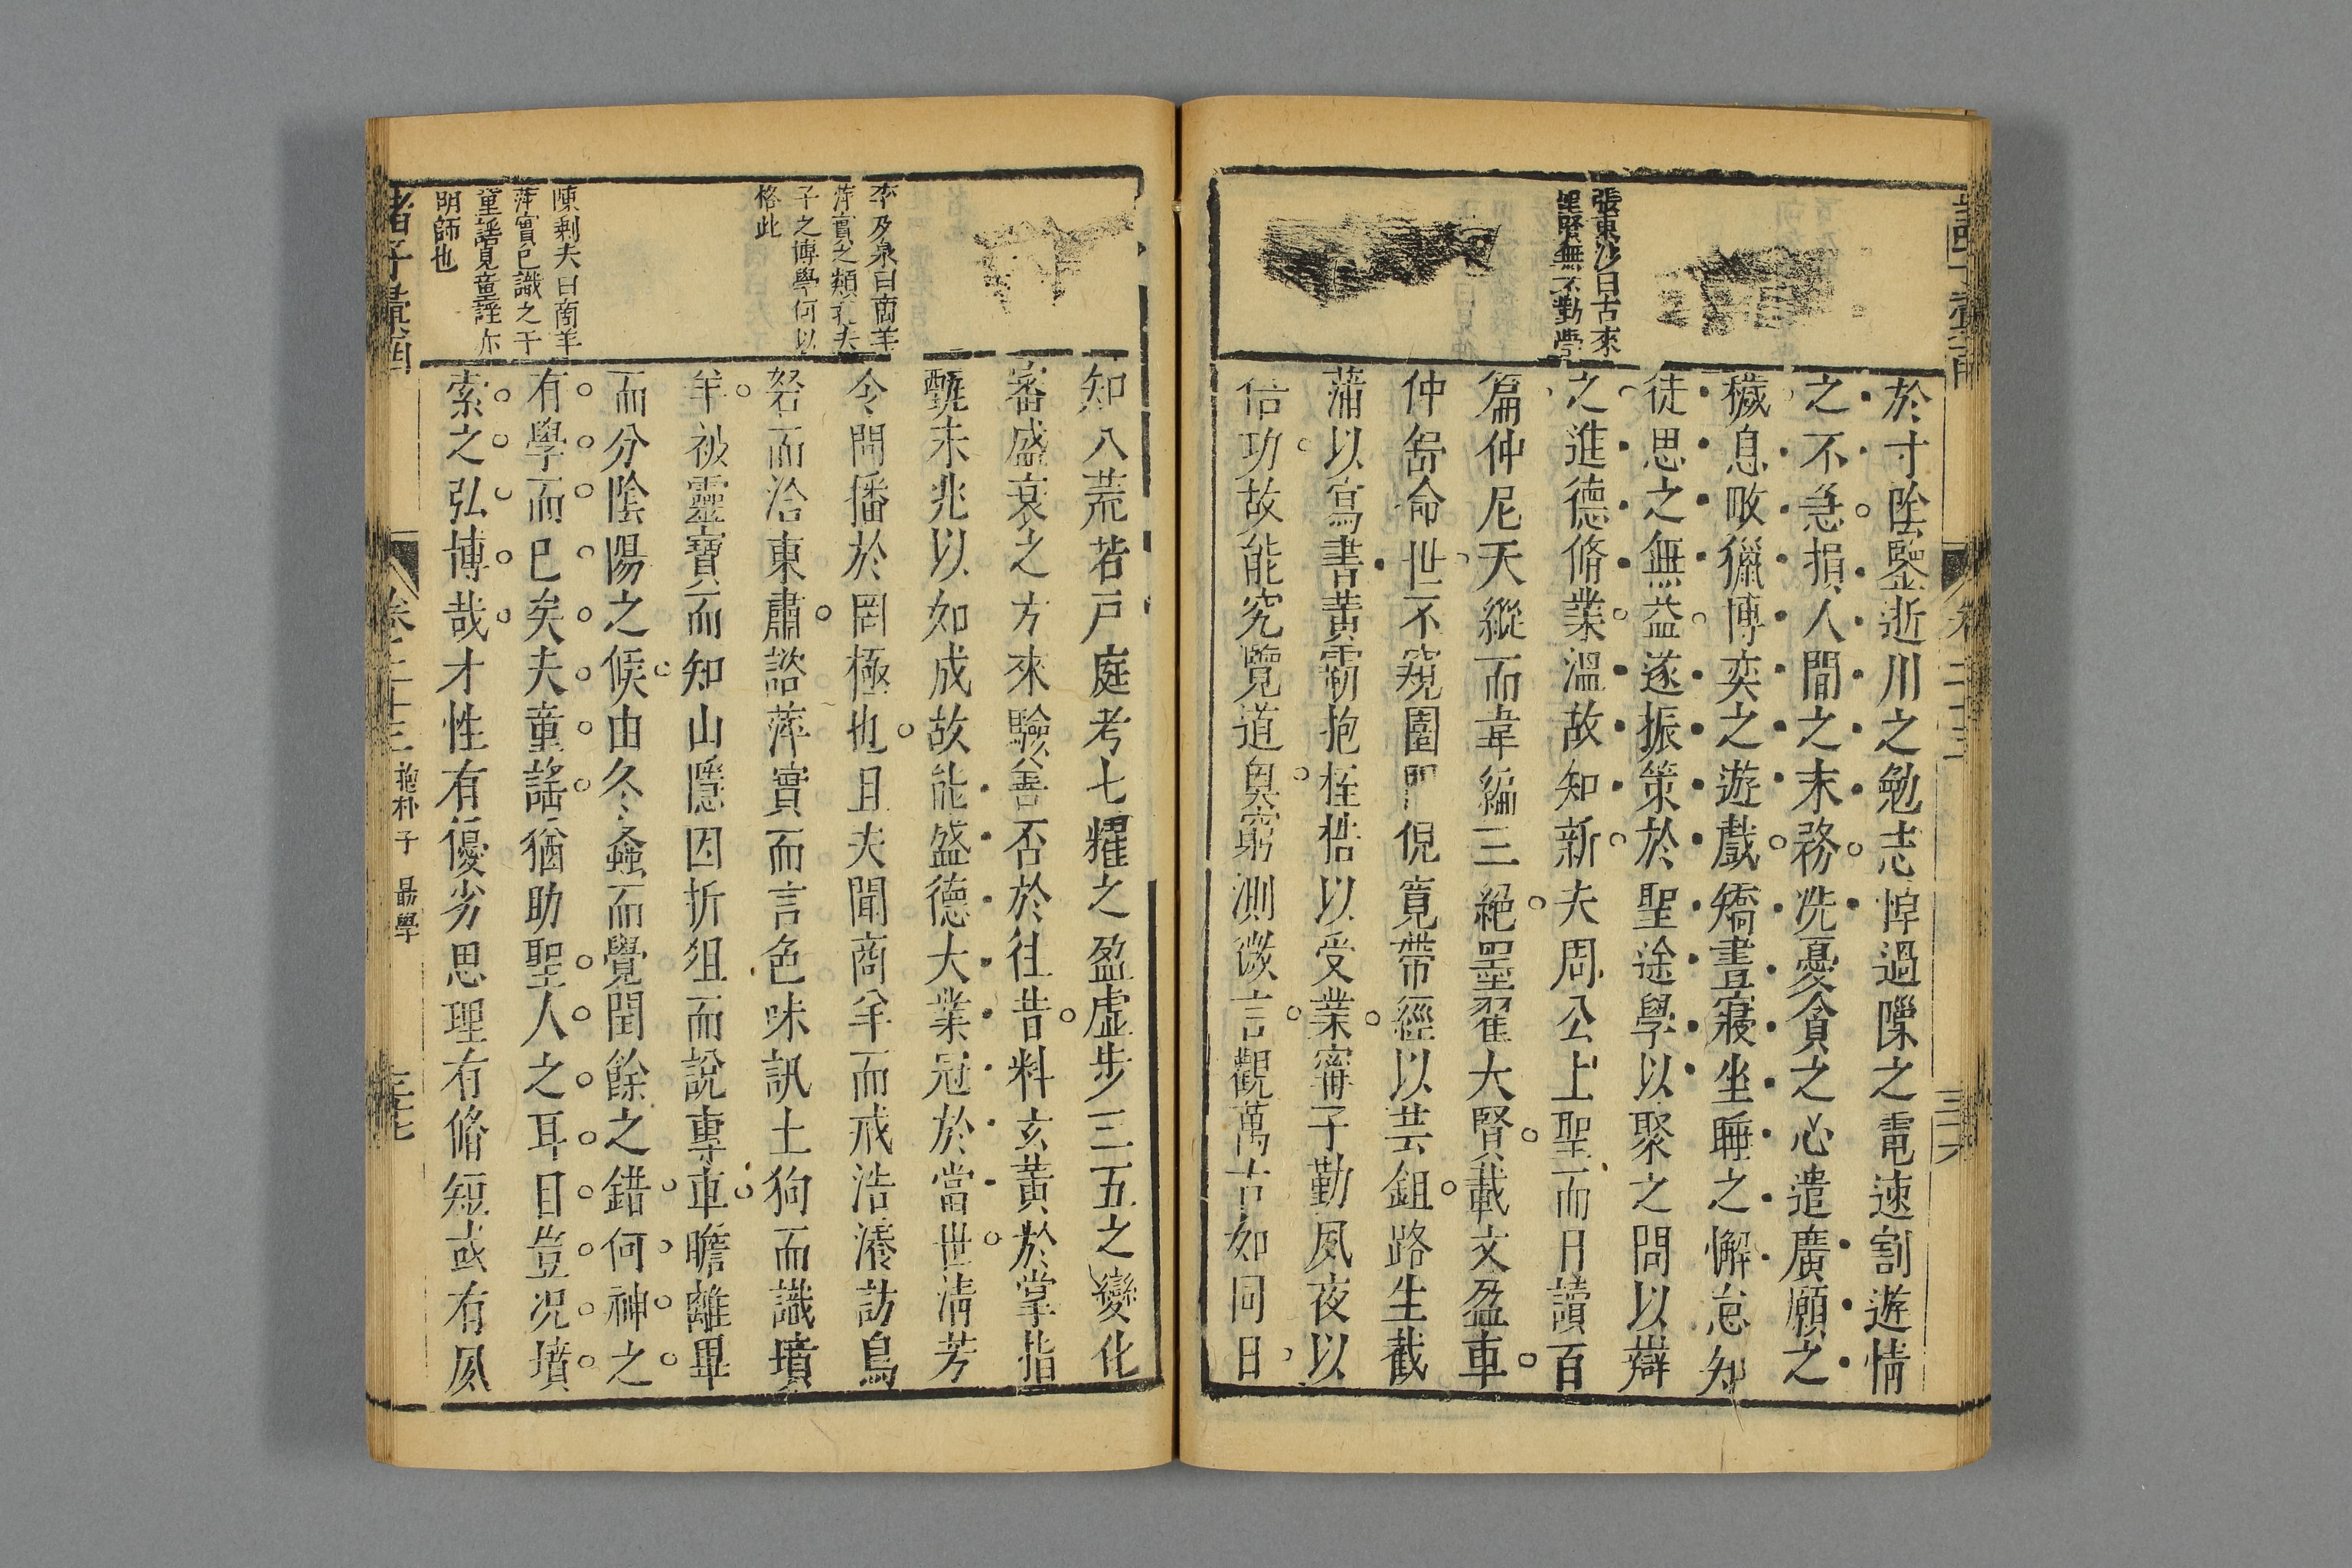 張東沙曰古來
聖賢無不勤學
於寸陰鑒逝川之勉志悼過隙之電速割遊情
之不急損人間之末務洗憂貧之心遣廣願之
穢息畋獵博奕之遊戲矯晝寢坐睡之懈怠知
徒思之無益遂振策於聖途學以聚之問以辯
之進德脩業溫故知新夫周公上聖而日讀百
篇仲尼天縱而韋編三絕墨翟大賢載文盈車
仲舒命世不窺園門倪寬帶經以芸鉏路生截
蒲以寫書黃霸抱桎梏以受業甯子勤夙夜以
倍功故能究覽道奥窮測微言觀萬古如同日
卷二十三
三十六
李及泉曰商羊
萍實之類孔夫
子之博學何以
格此
陳剩夫曰商羊
萍實已識之于
童謠見童謠亦
明師也
知八荒若戶庭考七耀之盈虛步三五之變化
審盛衰之方來驗善否於往昔料玄黃於掌指
甄未兆以如成故能盛德大業冠於當世清芳
令問播於罔極也且夫聞商羊而戒浩瀁訪鳥
砮而洽東肅諮萍實而言色味訊土狗而識墳
羊披靈寶而知山隱因折俎而說專車瞻離畢
而分陰陽之候由冬螽而覺閏餘之錯何神之
有學而已矣夫童謠猶助聖人之耳目豈況墳
索之弘博哉才性有優劣思理有脩短或有夙
諸子彙函
卷二十三
抱朴子
勗學
三十七